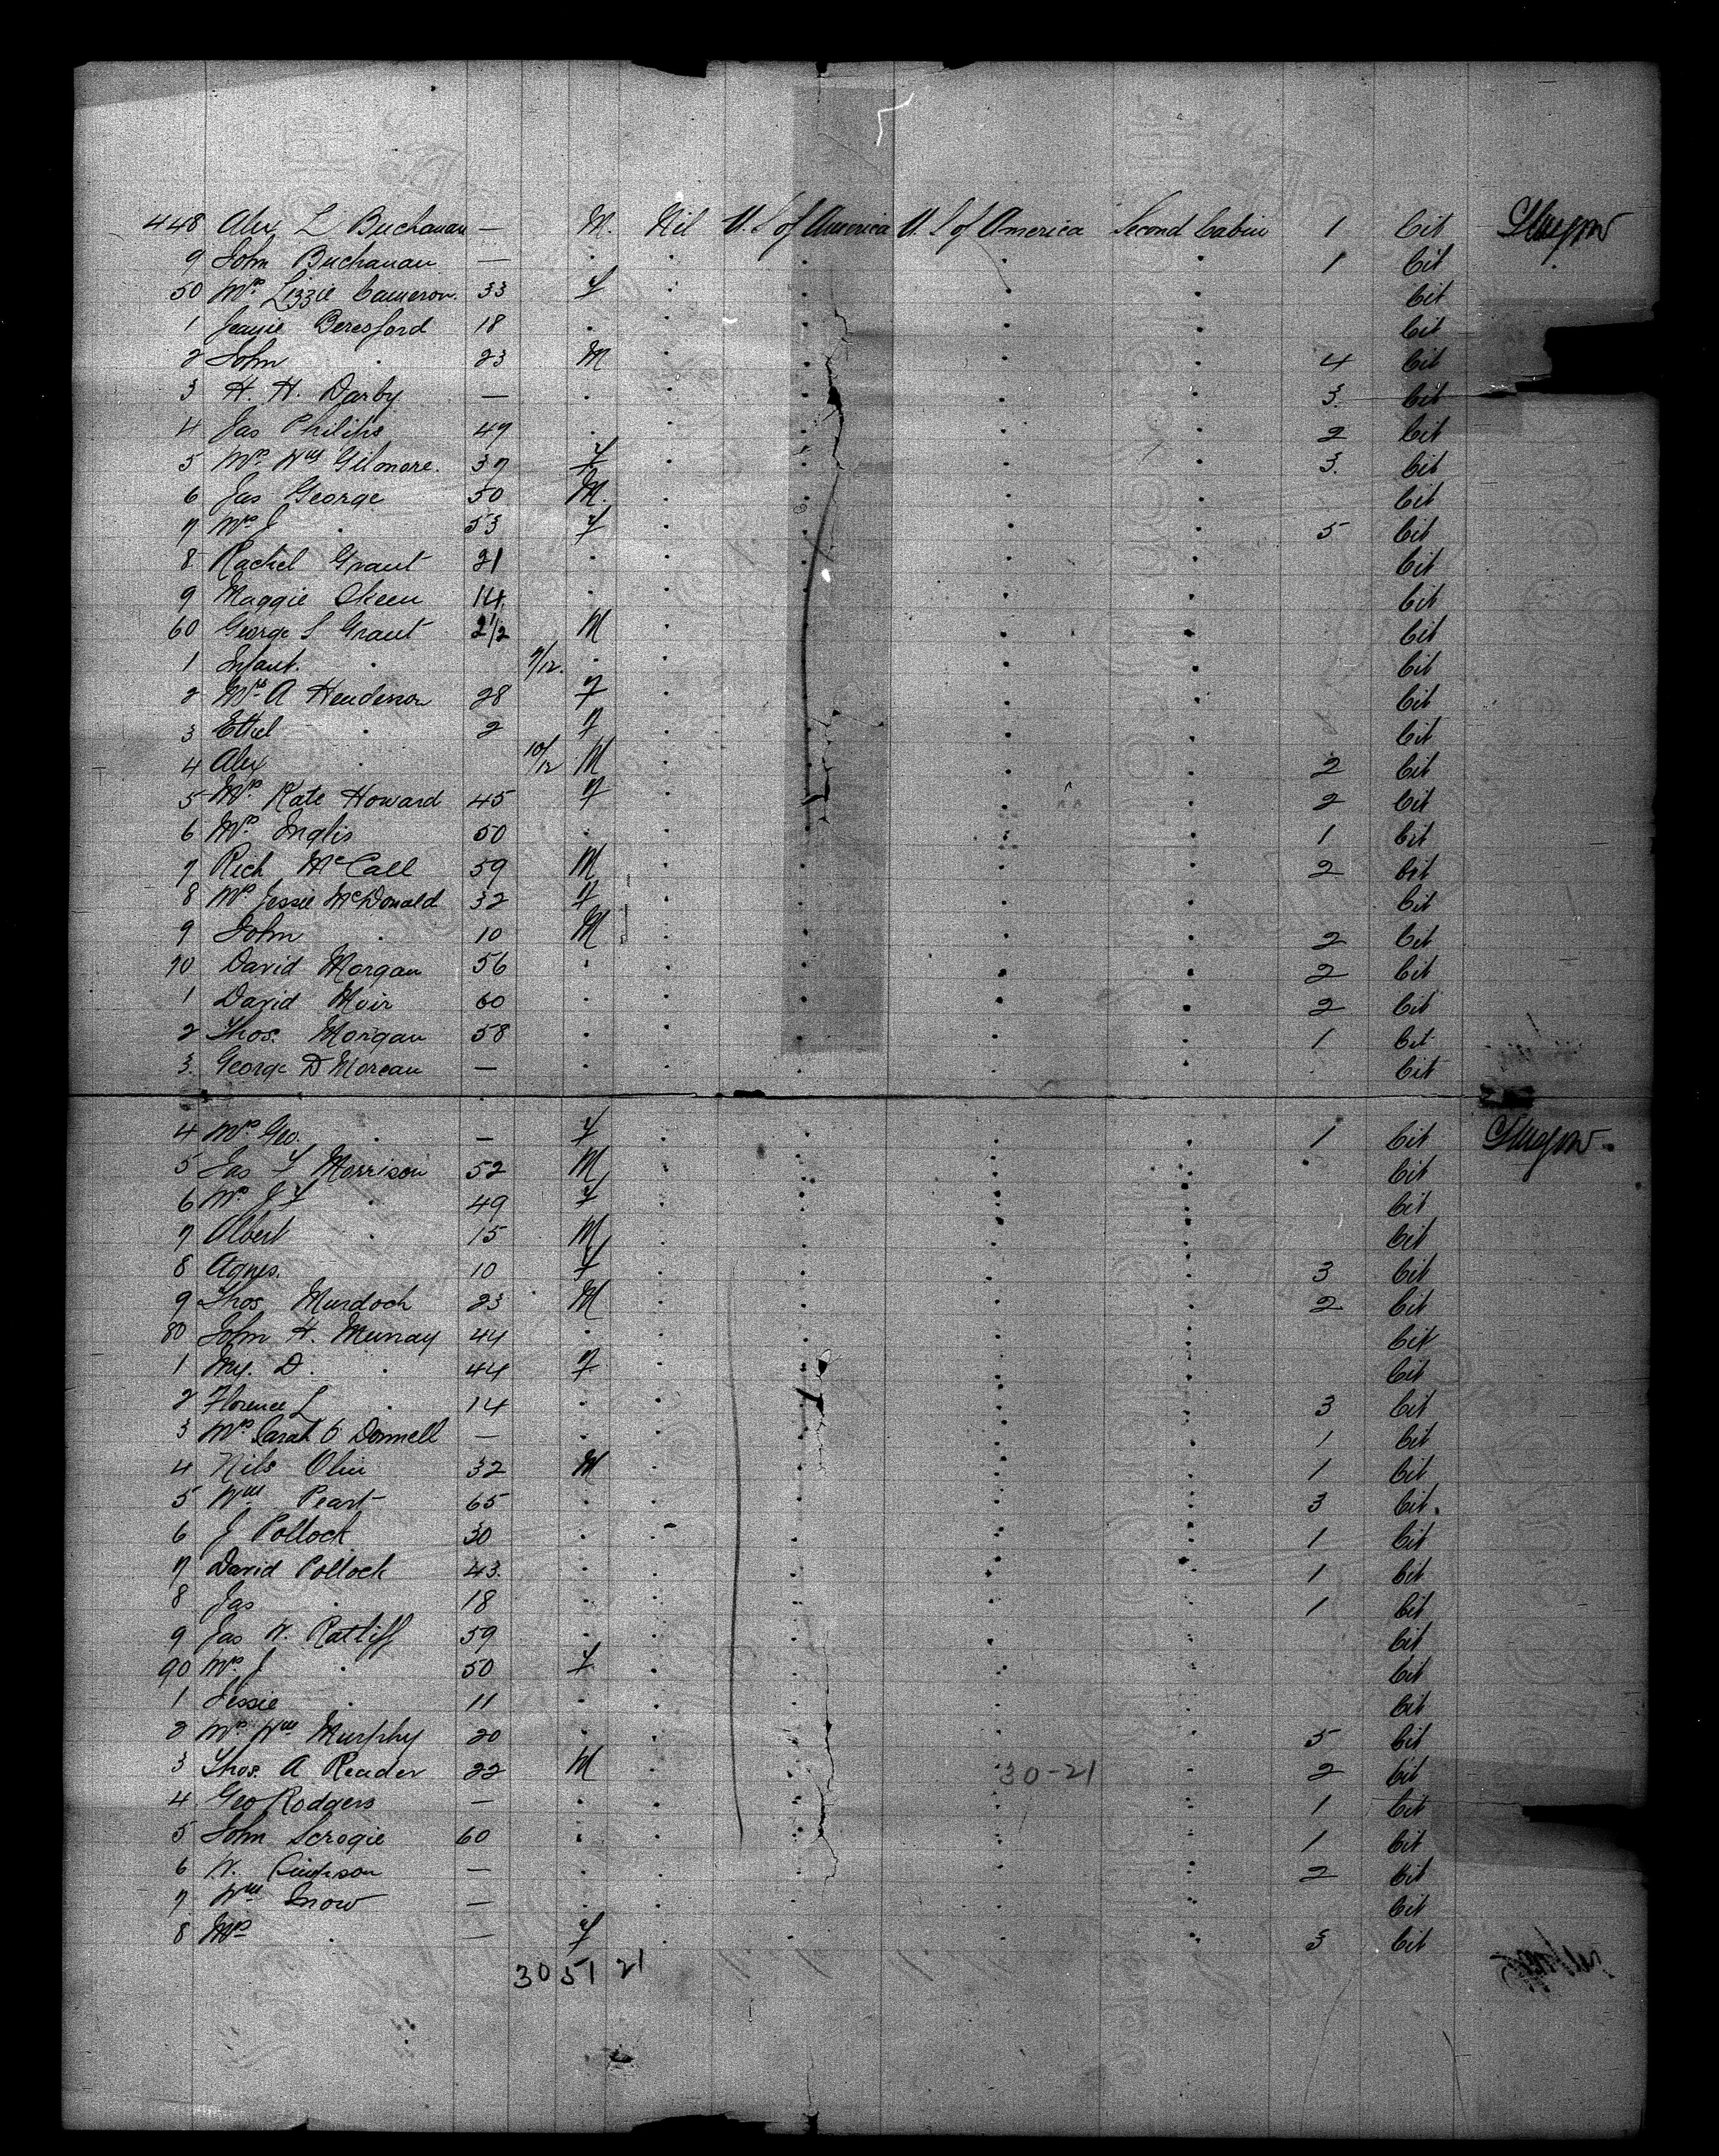 448 Alex L Buchanan — M. Nil U. S of America U. S of America Second Cabin 1 Cit Glasgow
9 John Buchanan — . . . . . 1 Cit .
50 Mrs Lizzie Cameron. 33 F . . . . Cit
1 Jeanie Beresford 18 . . . . . Cit
2 John . 23 M . . . . 4 Cit
3 H. H. Darby — . . . . . 3. Cit
4 Jas Philips 49 . . . . . 2 Cit
5 Mrs Wm Gilmore. 37 F . . . . 3. Cit
6 Jas George 50 M. . . . . Cit
7 Mrs J . 53 F . . . . 5 Cit
8 Rachel Grant 21 . . . . . Cit
9 Maggie Skeen 14 . . . . . Cit
60 George S Grant 2 1/2 M . . . . Cit
1 Infant. . 7/12. . . . . . Cit
2 Mrs A Henderson 28 F . . . . Cit
3 Ethel . 2 F . . . . Cit
4 Alex . 10/12 M . . . . 2 Cit
5 Mrs Kate Howard 45 F . . . . 2 Cit
6 Mrs Inglis 50 . . . . . 1 Cit
7 Rich McCall 59 M . . . . 2 Cit
8 Mrs Jessie McDonald 32 F . . . . Cit
9 John . 10 M . . . . 2 Cit
70 David Morgan 56 . . . . . 2 Cit
1 David Muir 60 . . . . . 2 Cit
2 Thos. Morgan 58 . . . . . 1 Cit
3. George D Moreau — . . . . . Cit
4 Mrs Geo. . — F . . . . 1 Cit Glasgow.
5 Jas F Morrison 52 M . . . . Cit
6 Mrs J F . 49 F . . . . Cit
7 Albert . 15 M . . . . Cit
8 Agnes. 10 F . . . . 3 Cit
9 Thos Murdoch 23 M . . . . 2 Cit
80 John H. Murray 44 . . . . . Cit
1 My. D. . 44 F . . . . Cit
2 Florence L . 14 . . . . . 3 Cit
3 Mrs Sarah O Donnell — . . . . . 1 Cit
4 Nils Olin 32 M . . . . 1 Cit
5 Wm Peart 65 . . . . . 3 Cit.
6 J Pollock 30 . . . . . 1 Cit
7 David Pollock 43. . . . . . 1 Cit
8 Jas . 18 . . . . . 1 Cit
9 Jas W. Ratliff 59 . . . . . Cit
90 Mrs J . 50 F . . . . Cit
1 Jessie . 11 . . . . . Cit
2 Mrs Wm Murphy 20 . . . . . 5 Cit
3 Thos. A Reader 22 M . . 30-21 . 2 Cit
4 Geo Rodgers — . . . . . 1 Cit
5 John Scrogie 60 . . . . . 1 Cit
6 W. — . . . . . 2 Cit
7 Wm Snow — . . . . . Cit
8 Mrs . — F . . . . 3 Cit
30 51 21